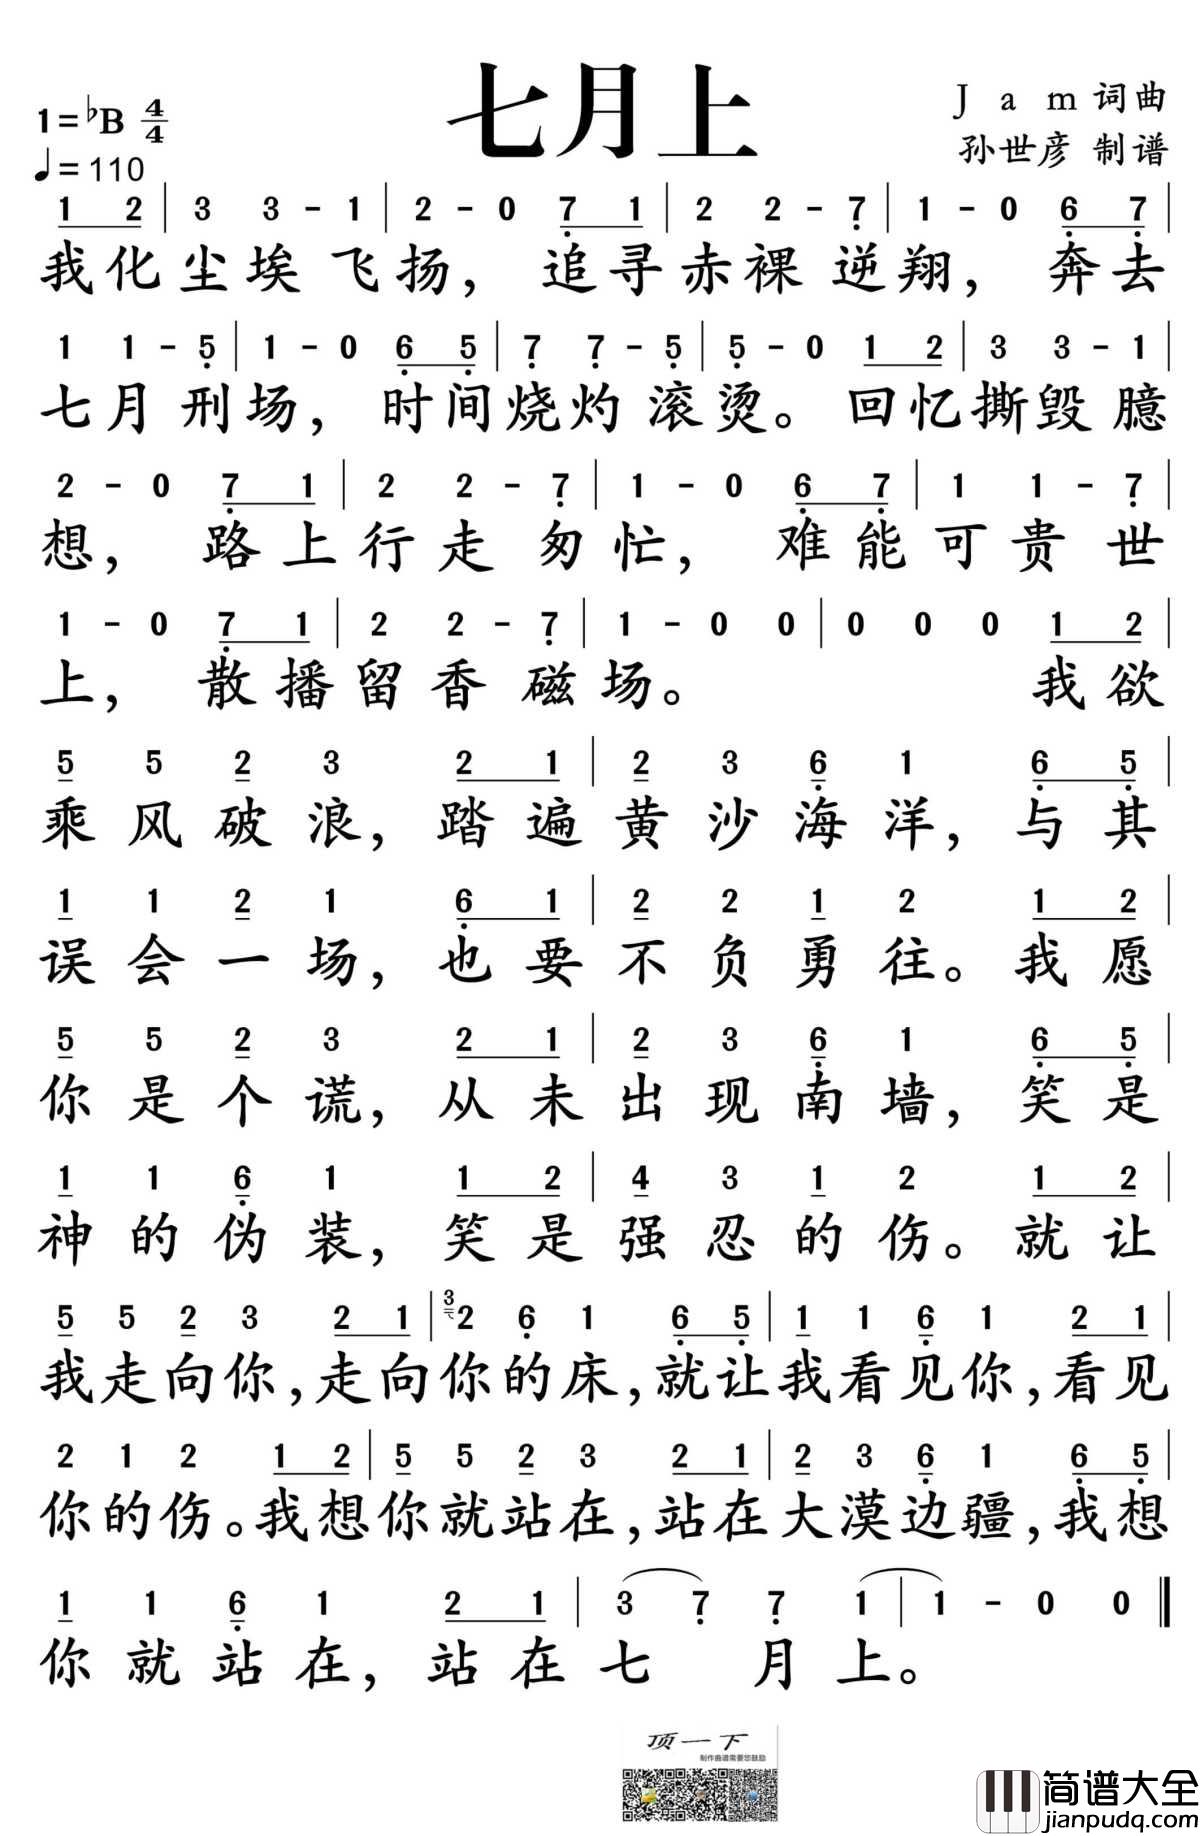 七月上
1=♭B 4/4
♩=110
J a m 词曲
孙世彦 制谱
1 2 | 3 3 - 1 | 2 - 0 7̣ 1 | 2 2 - 7̣ | 1 - 0 6̣ 7̣ |
我化尘埃飞扬，追寻赤裸逆翔，奔去
1 1 - 5̣ | 1 - 0 6̣ 5̣ | 7̣ 7̣ - 5̣ | 5̣ - 0 1 2 | 3 3 - 1 |
七月刑场，时间烧灼滚烫。回忆撕毁臆
2 - 0 7̣ 1 | 2 2 - 7̣ | 1 - 0 6̣ 7̣ | 1 1 - 7̣ |
想，路上行走匆忙，难能可贵世
1 - 0 7̣ 1 | 2 2 - 7̣ | 1 - 0 0 | 0 0 0 1 2 |
上，散播留香磁场。我欲
5 5 2 3 2 1 | 2 3 6̣ 1 6̣ 5̣ |
乘风破浪，踏遍黄沙海洋，与其
1 1 2 1 6̣ 1 | 2 2 1 2 1 2 |
误会一场，也要不负勇往。我愿
5 5 2 3 2 1 | 2 3 6̣ 1 6̣ 5̣ |
你是个谎，从未出现南墙，笑是
1 1 6̣ 1 1 2 | 4 3 1 2 1 2 |
神的伪装，笑是强忍的伤。就让
5 5 2 3 2 1 | 3 2 6̣ 1 6̣ 5̣ | 1 1 6̣ 1 2 1 |
我走向你，走向你的床，就让我看见你，看见
2 1 2 1 2 | 5 5 2 3 2 1 | 2 3 6̣ 1 6̣ 5̣ |
你的伤。我想你就站在，站在大漠边疆，我想
1 1 6̣ 1 2 1 | 3 7̣ 7̣ 1 | 1 - 0 0 ‖
你就站在，站在七月上。
顶一下
制作曲谱需要您鼓励
简谱大全
jianpudq.com